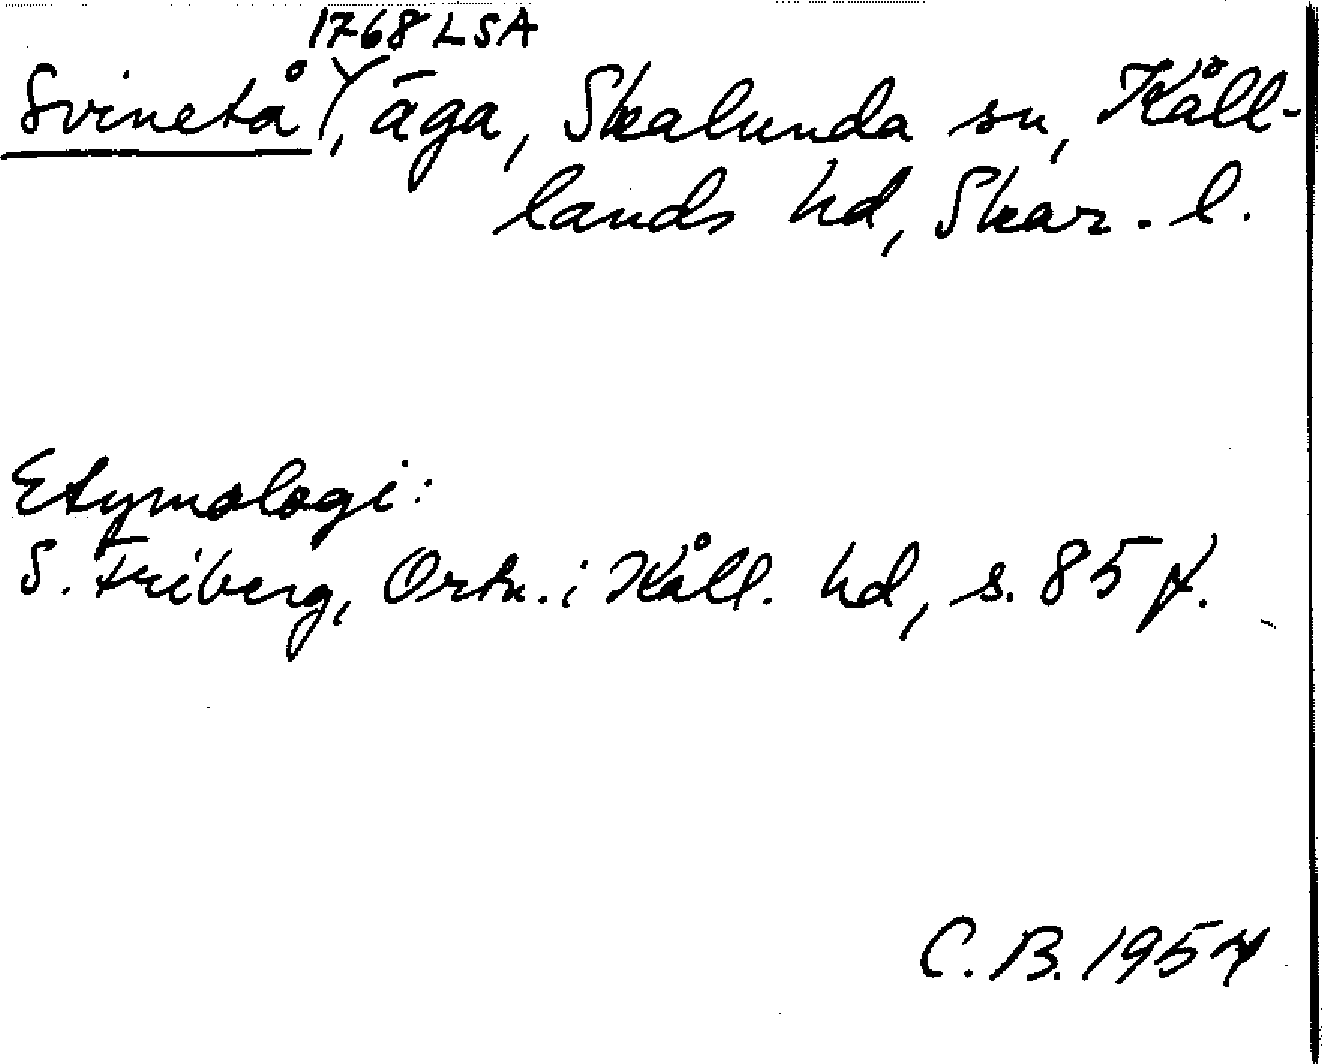 1768 LSA
Svinetå, äga, Skalunda sn, Kåll-
lands hd, Skar. l.
Etymologi:
S. Friberg, Ortn. i Kåll. hd, s. 85 f.
C. B. 1954